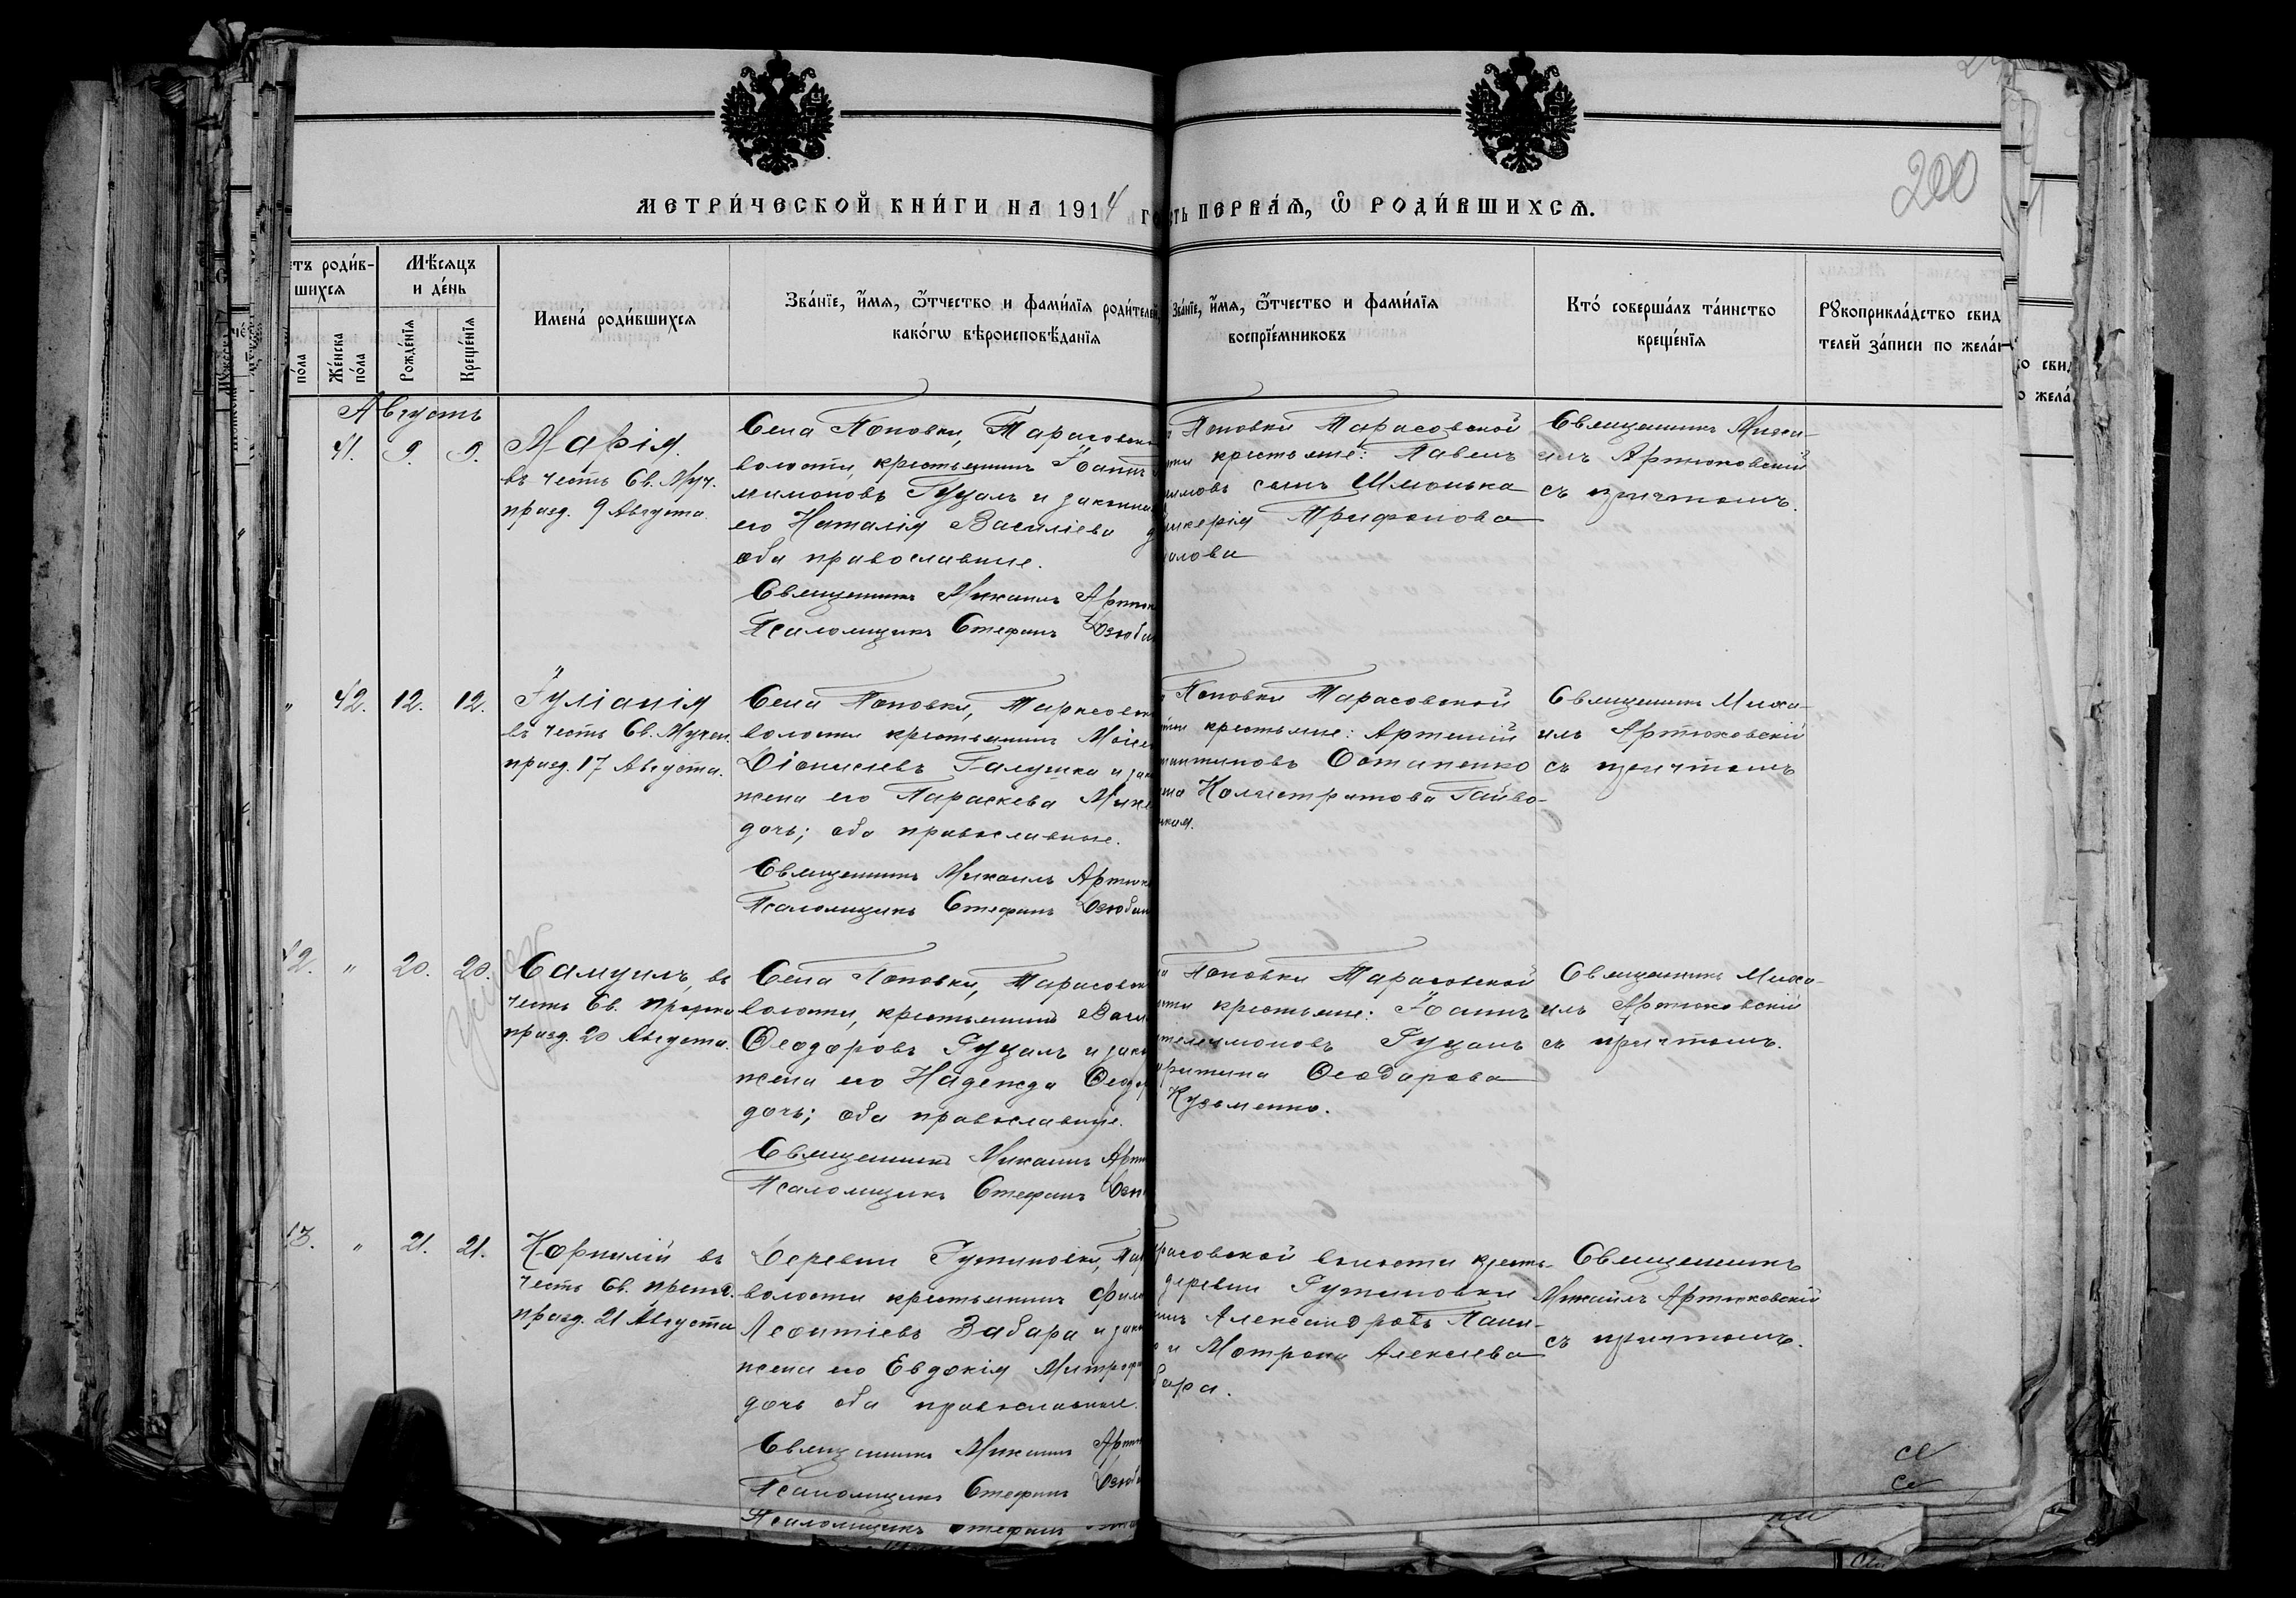 200
МЕТРИ́ЧЕСКОЙ КНИ́ГИ НА 1914 ГО
СТЬ ПЕРВА́Ѧ, Ѡ҆ РОДИ́ВШИХСѦ.
етъ роди́в-
шихся
по́ла
Же́нска
по́ла
Мѣ́сяцъ
и де́нь
Рожде́нїѧ
Креще́нїѧ
Имена̀ роди́вшихся
Зва́нїе, и҆́мѧ, ѻ҆́тчество и фами́лїѧ роди́телей,
како́гѡ вѣроисповѣ́данїѧ
Зва́нїе, и҆́мѧ, ѻ҆́тчество и фами́лїѧ
воспрїе́мниковъ
Кто̀ соверша́лъ та́инство
креще́нїѧ
Рꙋкоприкла́дство свид
телей за́писи по жела́н
Августъ
41. 9. 9.
Марія.
въ честь Св. Муч.
празд. 9 Августа.
Села Поповки, Тарасовск
волости, крестьянинъ Іоаннъ
лимоновъ Гуцалъ и законна
его Наталія Василіева д
оба православные.
Священникъ Михаилъ Артюх
Псаломщикъ Стефанъ Дзюба
Поповки Тарасовской
сти крестьяне: Павелъ
имовъ сынъ Шмонька
икерія Трифонова
алова
Священникъ Миха-
илъ Артюховскій
съ причтомъ.
" 42. 12. 12.
Іуліанія
въ честь Св. Мучен.
празд. 17 Августа.
Села Поповки, Тарасовск
волости крестьянинъ Моисе
Діонисіевъ Галушка и зак
жена его Параскева Мих
дочь; оба православные.
Священникъ Михаилъ Артюх
Псаломщикъ Стефанъ Дзюба
Поповки Тарасовской
сти крестьяне: Артемій
тантиновъ Остапенко
на Калистратова Гайво-
ская.
Священникъ Миха-
илъ Артюховскій
съ причтомъ
42. " 20. 20.
Самуилъ, въ
честь Св. Пророка
празд. 20 Августа.
Села Поповки, Тарасовск
волости, крестьянинъ Васи
Ѳеодоровъ Гуцалъ и зак
жена его Надежда Ѳеодо
дочь; оба православные.
Священникъ Михаилъ Арт
Псаломщикъ Стефанъ Дзю
Поповки Тарасовской
сти крестьяне: Іоаннъ
телеимоновъ Гуцалъ
фитина Ѳеодорова
Кузьменко.
Священникъ Миха-
илъ Артюховскій
съ причтомъ.
13. " 21. 21.
Корнилій въ
честь Св. препод.
празд. 21 Августа
Деревни Гутиновки, Тар
волости крестьянинъ Фили
Леонтіевъ Забара и зак
жена его Евдокія Митроф
дочь оба православные.
Священникъ Михаилъ Артю
Псаломщикъ Стефанъ Дзюба
Псаломщикъ Стефанъ
расовской волости кресть-
деревни Гутиновки
инъ Александровъ Пани-
о и Матрона Алексіева
бара.
Священникъ
Михаилъ Артюховскій
съ причтомъ.